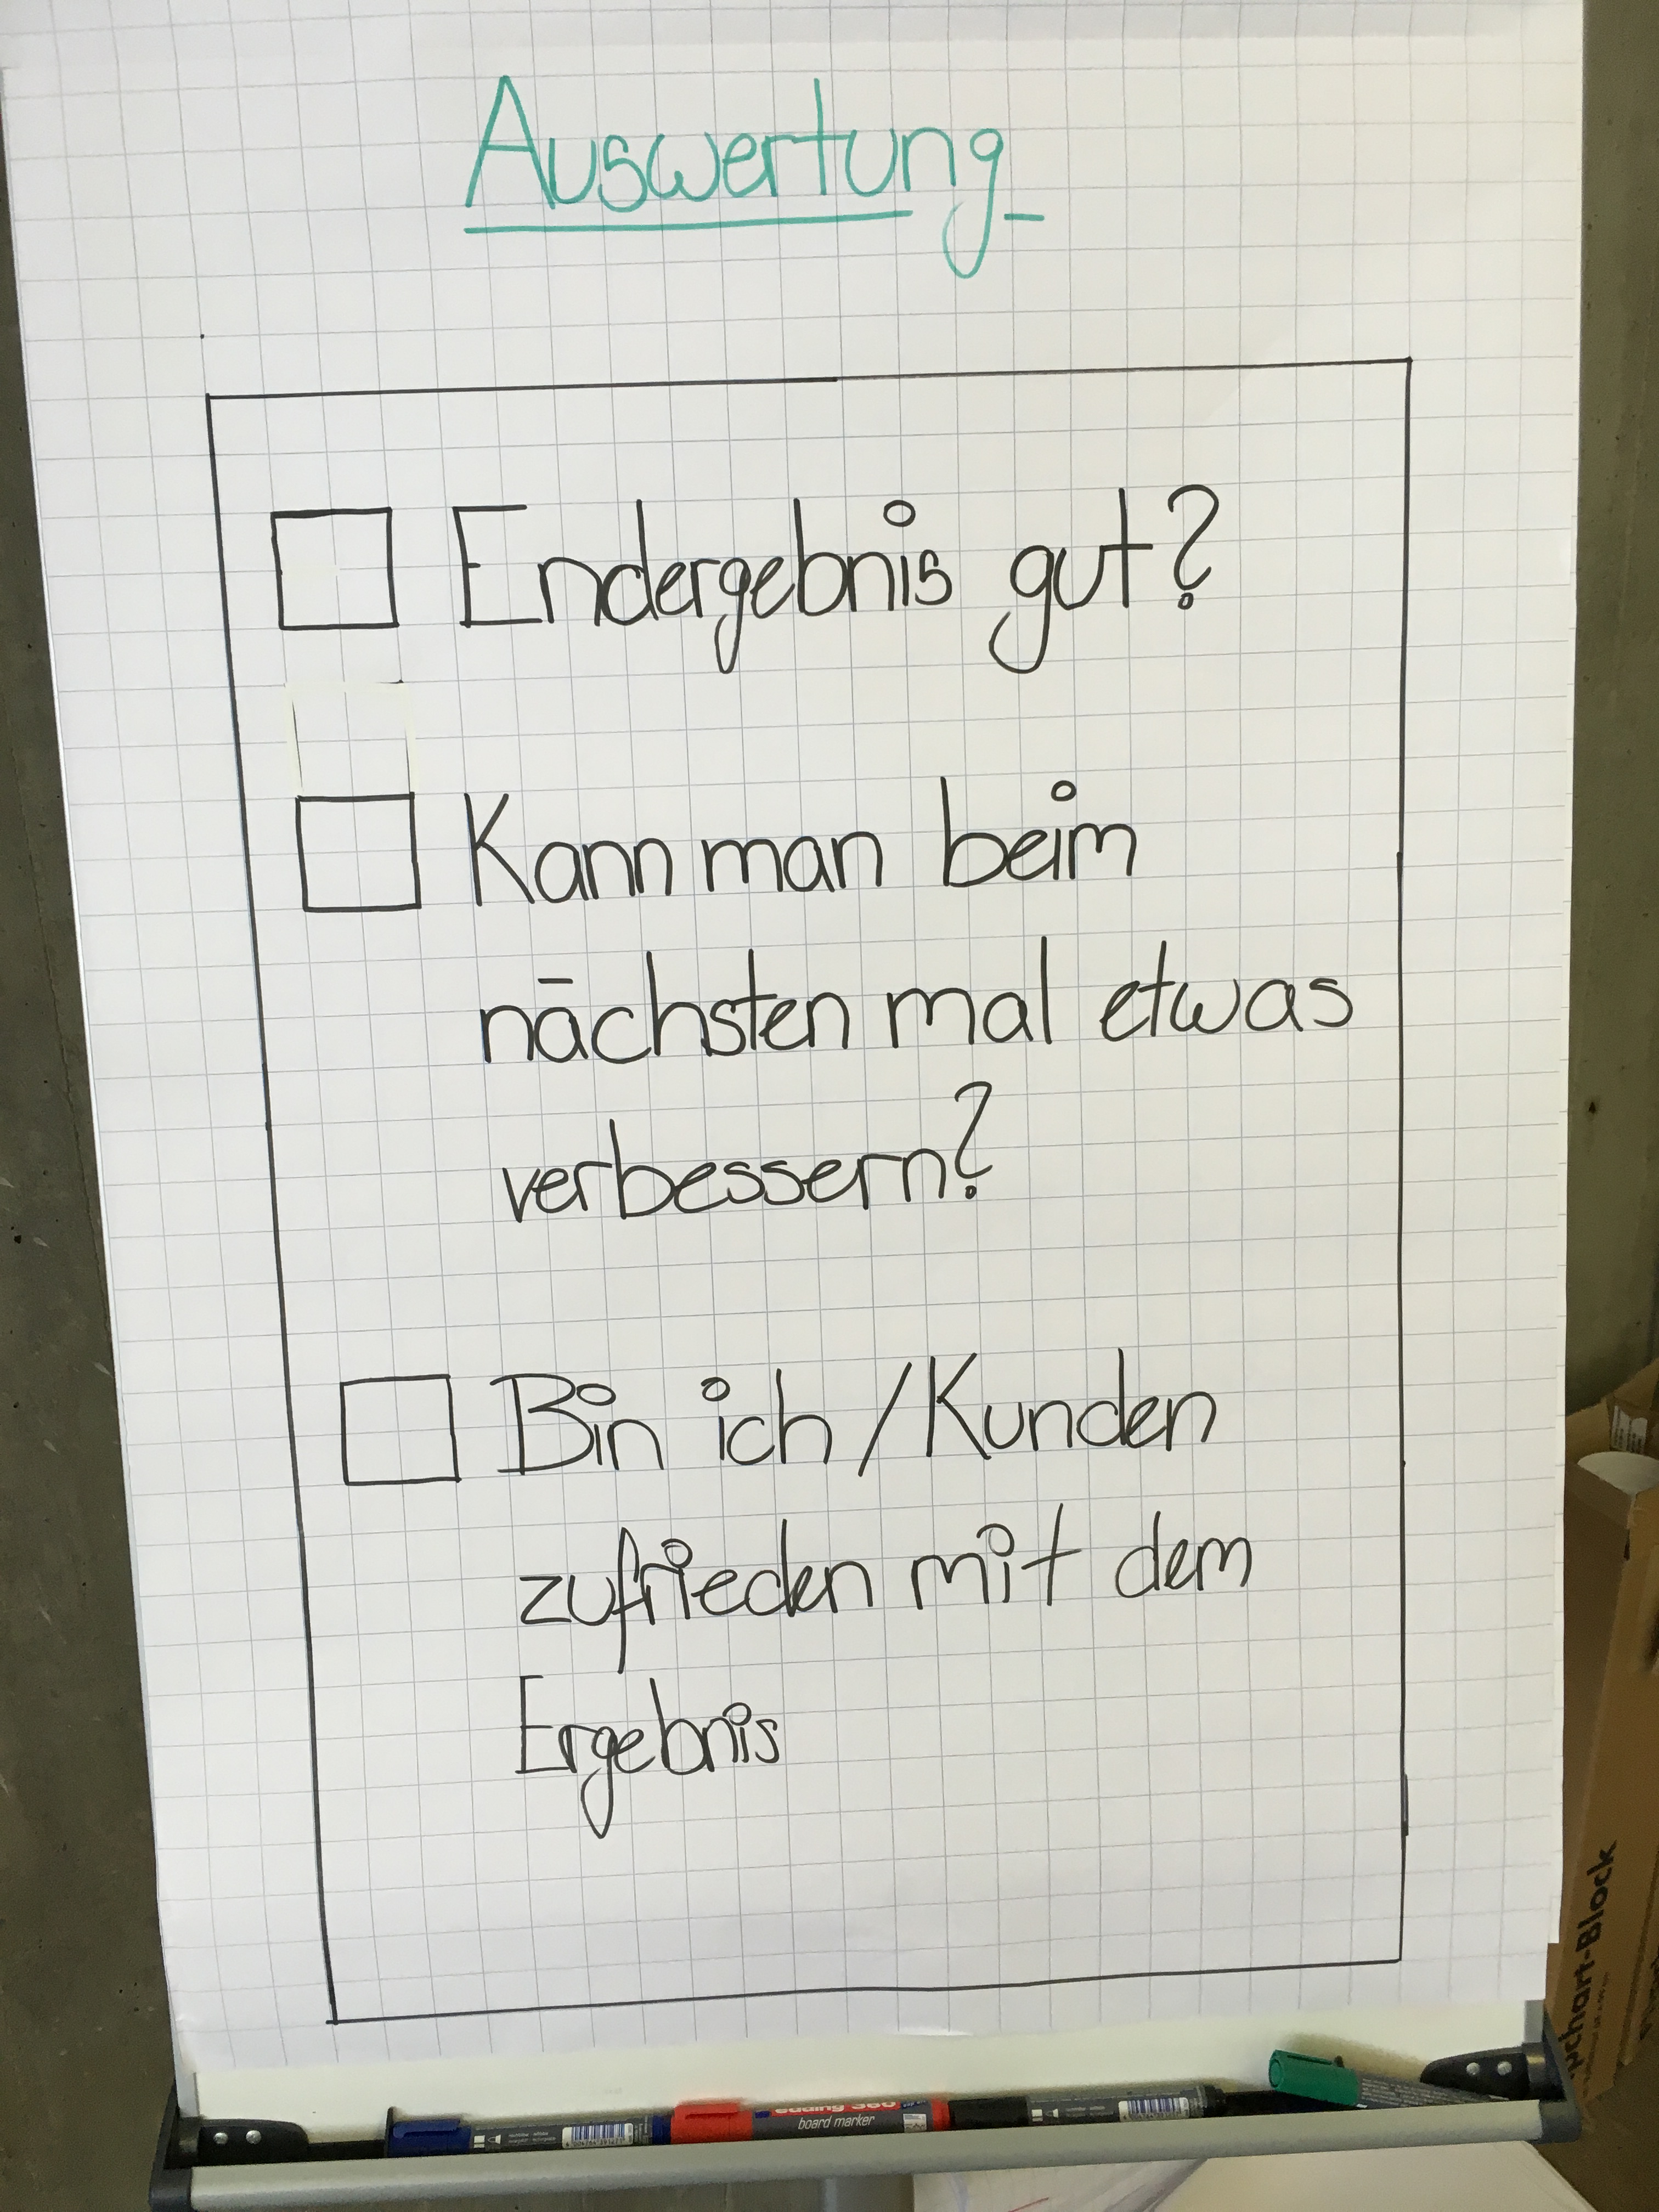 Auswertung
Endergebnis gut?
Kann man beim
nächsten mal etwas
verbessern?
Bin ich / Kunden
zufrieden mit dem
Ergebnis
pchart-Block
edding 360
board marker